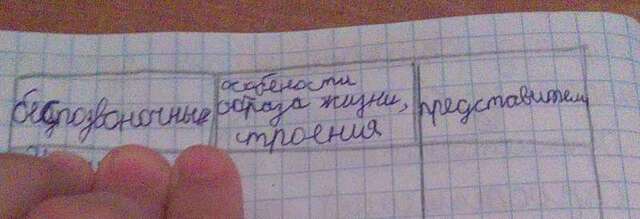 беспозвоночные
особености
образа жизни,
строения
представители